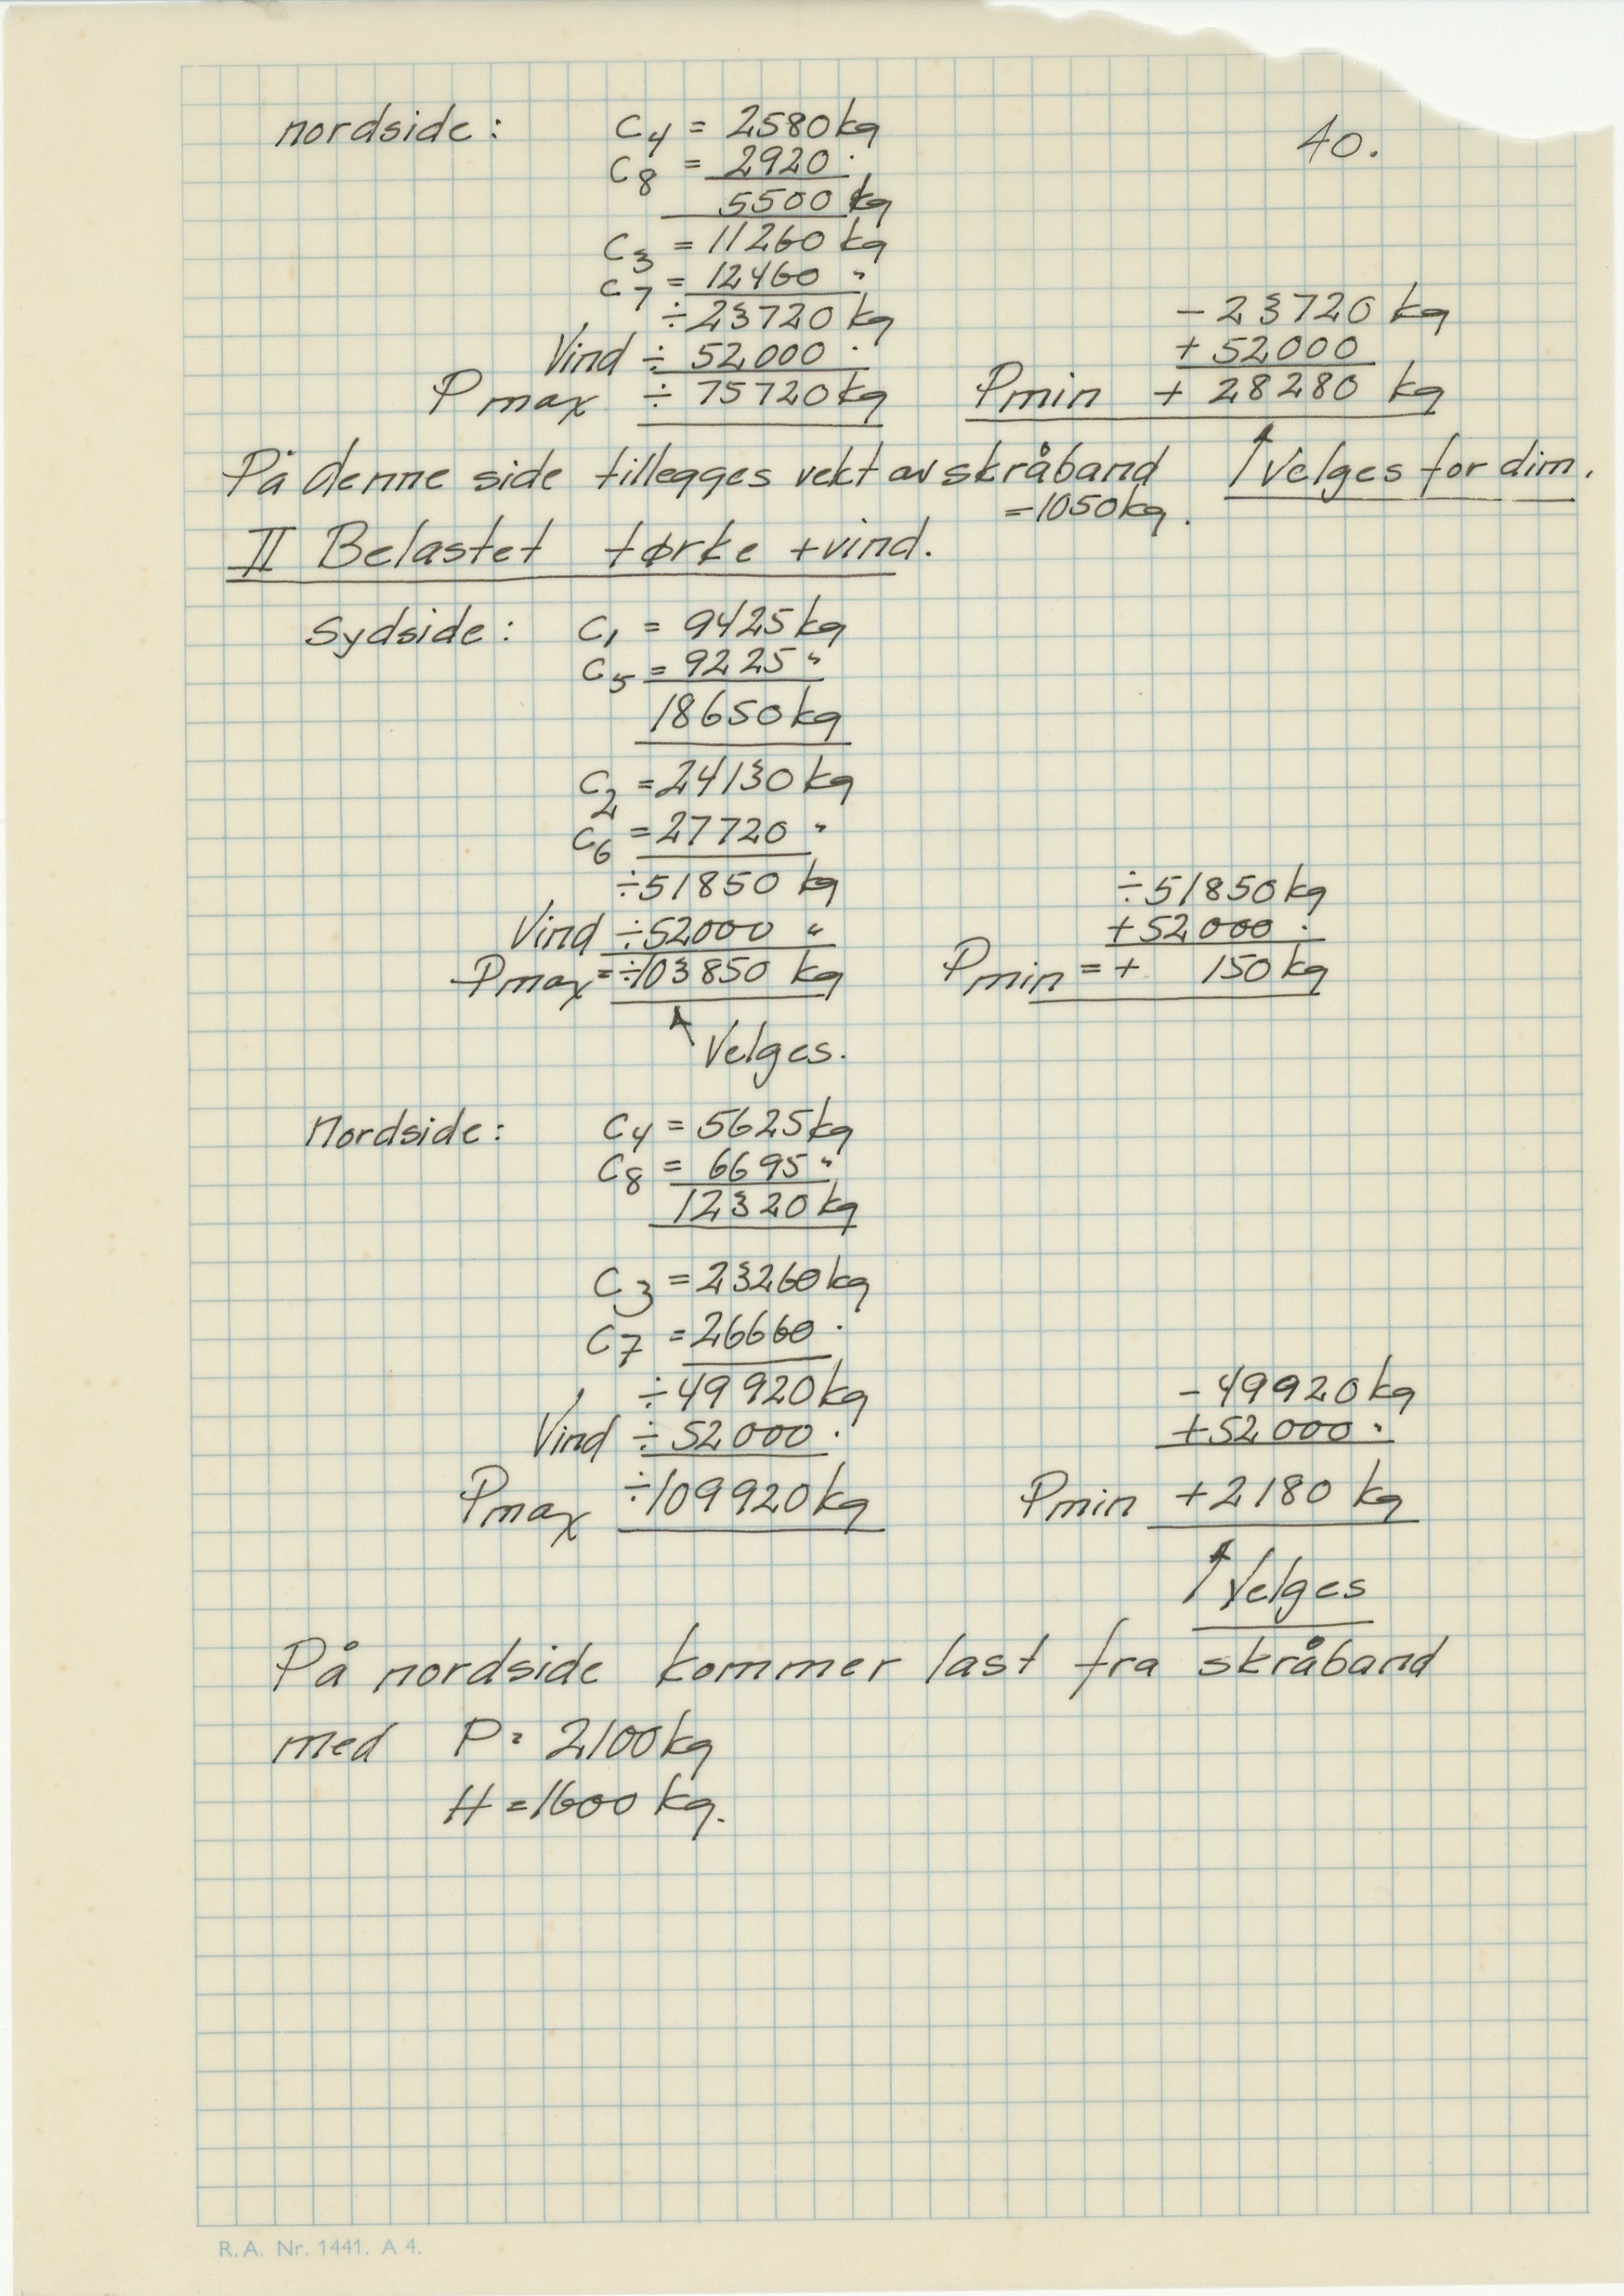 40.
nordside: C4 = 2580 kg
C8 = 2920 "
5500 kg
C3 = 11260 kg
C7 = 12460 "
÷ 23720 kg - 23720 kg
Vind ÷ 52000 " + 52000
Pmax ÷ 75720 kg Pmin + 28280 kg
På denne side tillegges vekt av skråband ↑ Velges for dim.
= 1050 kg.
II Belastet tørke + vind.
Sydside: C1 = 9425 kg
C5 = 9225 "
18650 kg
C2 = 24130 kg
C6 = 27720 "
÷ 51850 kg ÷ 51850 kg
Vind ÷ 52000 " + 52000 "
Pmax = ÷ 103850 kg Pmin = + 150 kg
↑ Velges.
Nordside: C4 = 5625 kg
C8 = 6695 "
12320 kg
C3 = 23260 kg
C7 = 26660 "
÷ 49920 kg - 49920 kg
Vind ÷ 52000 " + 52000 "
Pmax ÷ 109920 kg Pmin + 2180 kg
↑ Velges
På nordside kommer last fra skråband
med P = 2100 kg
H = 1600 kg.
R.A. Nr. 1441. A 4.